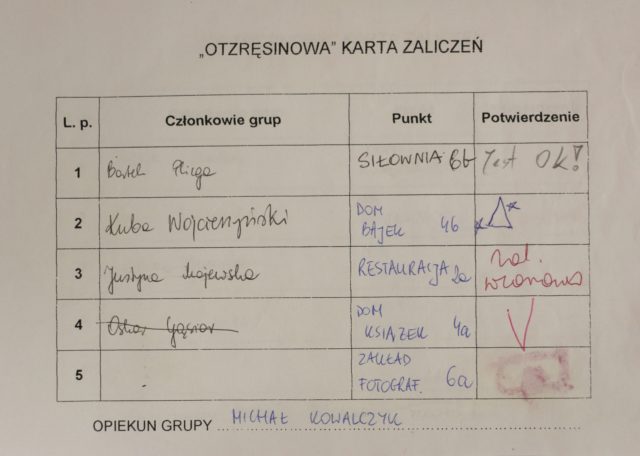 „OTZRĘSINOWA” KARTA ZALICZEŃ
L. p. Członkowie grup Punkt Potwierdzenie
1 Bartek SIŁOWNIA 6b Jest OK!
2 Kuba Wojcieszyński DOM BAJEK 4b
3 Justyna Majewska RESTAURACJA 2a zal.
4 Oskar Gąsior DOM KSIĄŻEK 4a
5 ZAKŁAD FOTOGRAF. 6a
OPIEKUN GRUPY MICHAŁ KOWALCZYK